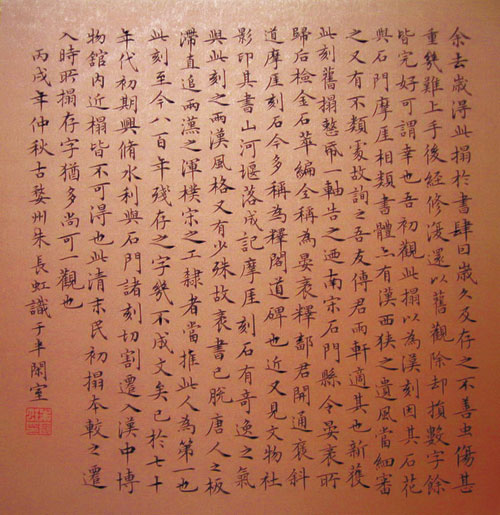 余去歲得此搨於書肆曰歲久又存之不善虫傷甚
重幾難上手後經修復還以舊觀除却損數字餘
皆完好可謂幸也吾初觀此搨以為漢刻因其石花
與石門摩崖相類書體亦有漢西狹之遺風當細審
之又有不類處故詢之吾友傅君雨軒適其也新獲
此刻舊搨整帋一軸告之迺南宋石門縣令晏袤所
歸后檢金石萃編全稱為晏袤釋鄐君開通褒斜
道摩崖刻石今多稱為釋閣道碑也近又見文物社
影印其書山河堰落成記摩崖刻石有奇逸之氣
與此刻之兩漢風格又有少殊故袤書已脫唐人之板
滯直追兩漢之渾樸宋之工隸者當推此人為第一也
此刻至今八百年殘存之字幾不成文矣已於七十
年代初期興脩水利與石門諸刻切割遷入漢中博
物舘內近搨皆不可得也此清末民初搨本較之遷
入時所搨存字猶多尚可一觀也
丙戌年仲秋古婺州朱長虹識于半閑室